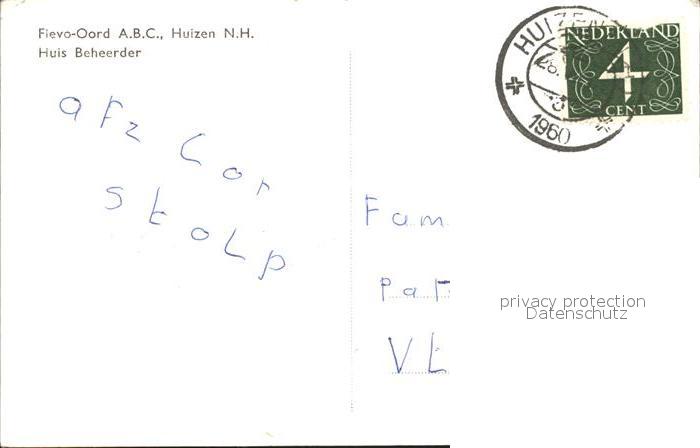 Fievo-Oord A.B.C., Huizen N.H.
Huis Beheerder
HUIZEN
1960
NEDERLAND
4
CENT
afz Cor
Stolp
Fam
privacy protection
Datenschutz